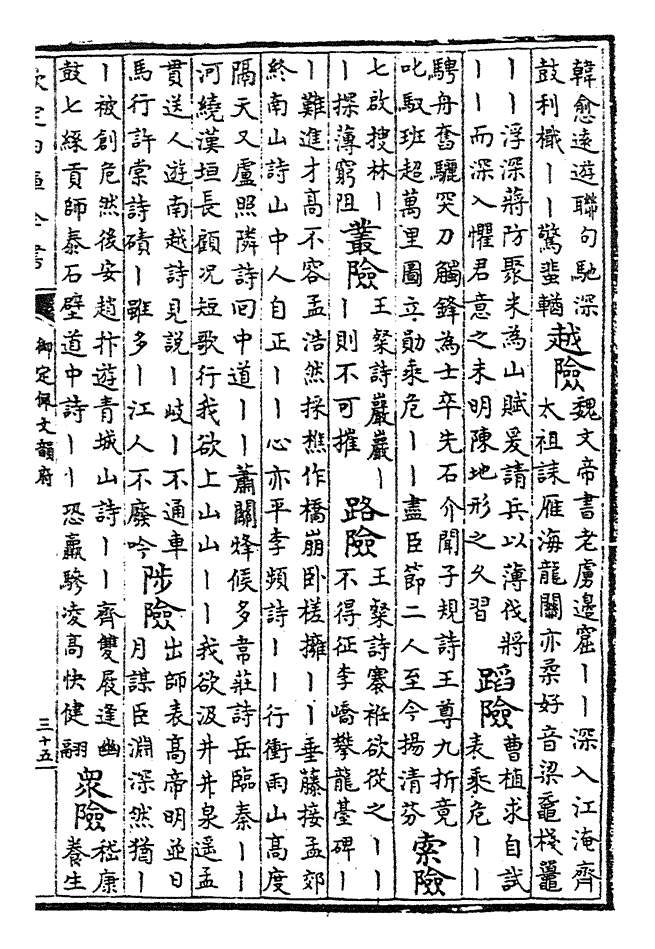 韓愈遠遊聯句馳深
鼓利檝——驚蜚輶
越險
魏文帝書老虜邊窟——深入江淹齊
太祖誄雁海龍關亦柔好音梁黿棧鼉
——浮深蔣防聚米為山賦爰請兵以薄伐將
——而深入懼君意之未明陳地形之久習
蹈險
曹植求自試
表乘危——
騁舟奮驪突刀觸鋒為士卒先石介聞子規詩王尊九折竟
叱馭班超萬里圖立勛乘危——盡臣節二人至今揚清芬
索險
七啟搜林—
—探薄窮阻
叢險
王粲詩巖巖—
—則不可摧
路險
王粲詩褰袵欲從之——
不得征李嶠攀龍臺碑—
—難進才高不容孟浩然採樵作橋崩卧槎擁——垂藤接孟郊
終南山詩山中人自正——心亦平李頻詩——行衝雨山高度
隔天又盧照隣詩回中道——蕭關烽候多韋莊詩岳臨秦——
河繞漢垣長顧况短歌行我欲上山山——我欲汲井井泉遥孟
貫送人遊南越詩見説—岐—不通車
馬行許棠詩磧—雖多—江人不廢吟
陟險
出師表高帝明並日
月謀臣淵深然猶—
—被創危然後安趙抃遊青城山詩——齊雙屐逢幽
鼓七絲貢師泰石壁道中詩——恐羸驂凌高快健翮
眾險
嵇康
養生
欽定四庫全書
御定佩文韻府
三十五